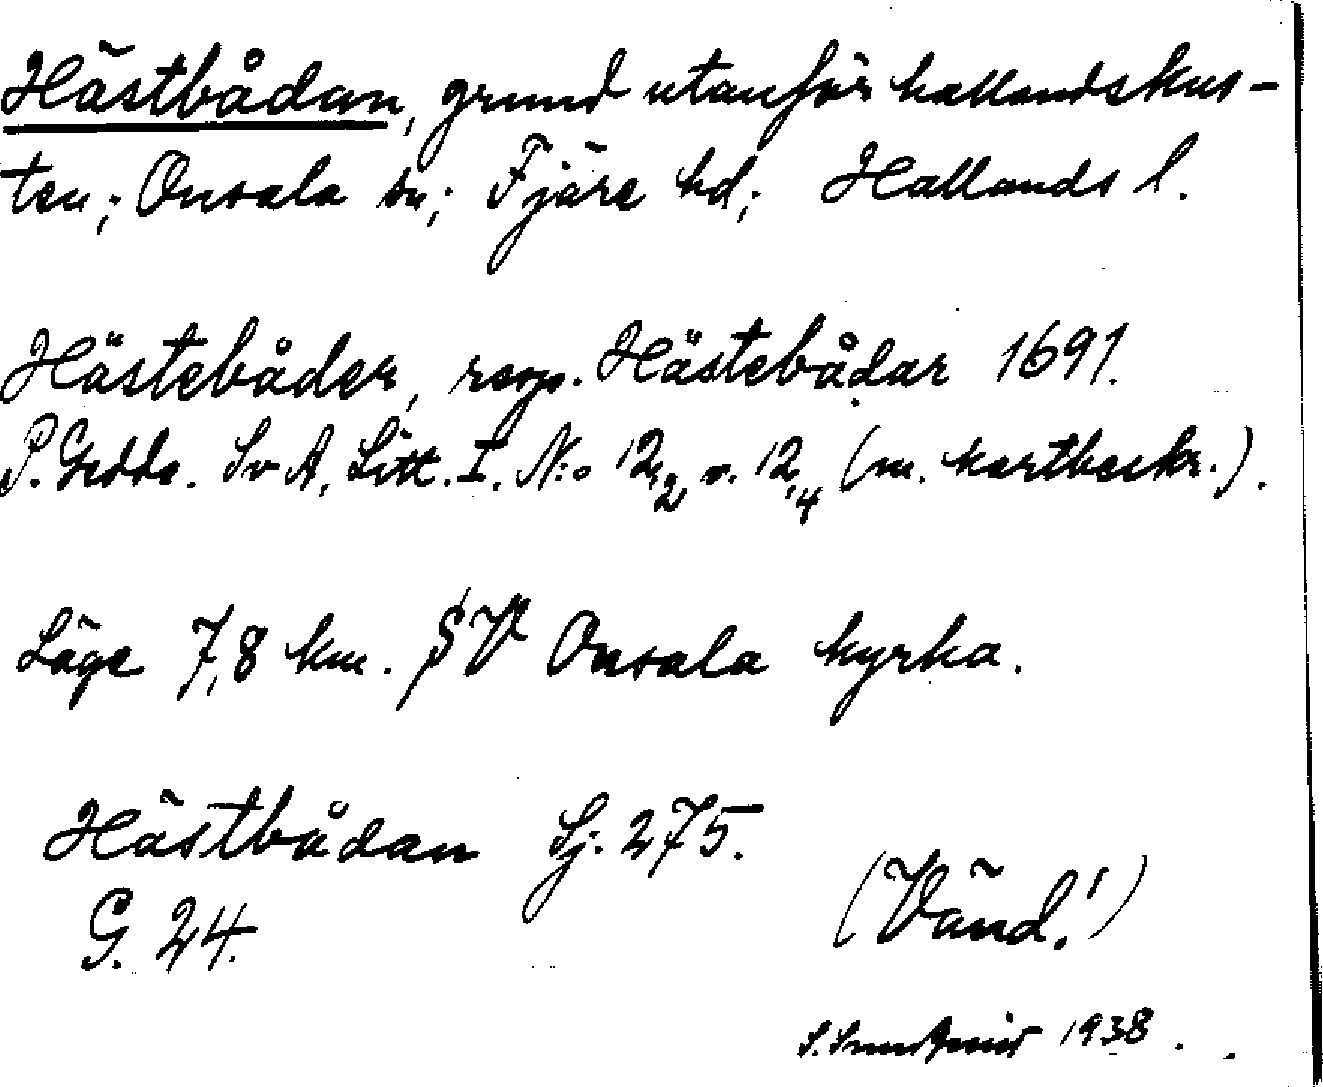 Hästbådan, grund utanför hallandskus-
ten; Onsala sn; Fjäre hd; Hallands l.
Hästebåder, resp. Hästebådar 1691.
P. Gedda. Sv A, Litt. I. N:o 12,2 o. 12,4 (m. kartbeskr.).
Läge 7,8 km. SV Onsala kyrka.
Hästbådan Sj. 275.
G. 24.
(Vänd!)
1938.